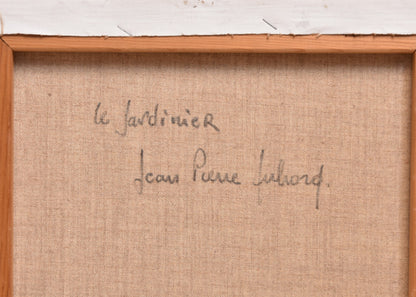 le JardinieR
Jean Pierre